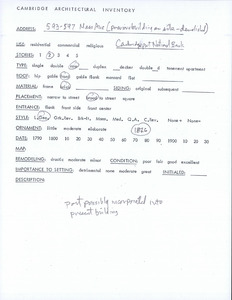 CAMBRIDGE ARCHITECTURAL INVENTORY
ADDRESS: 593-597 Mass Ave (previous building on site - demolished)
USE: residential commercial religious Cambridgeport National Bank
STORIES: 1 2 3 4 5
TYPE: single double row duplex decker double d tenement apartment
ROOF: hip gable front gable flank mansard flat
MATERIAL: frame brick SIDING: original subsequent
PLACEMENT: narrow to street broad to street square
ENTRANCE: flank front side front center
STYLE: L.Geo, Grk.Rev, Ital, Mans, Med, Q.A., C.Rev, None
ORNAMENT: little moderate elaborate 1826
DATE: 1790 1800 10 20 30 40 50 60 70 80 90 1900 10 20 30
MAP:
REMODELING: drastic moderate minor CONDITION: poor fair good excellent
IMPORTANCE TO SETTING: detrimental none moderate great INITIALED:
DESCRIPTION:
part possibly incorporated into
present building